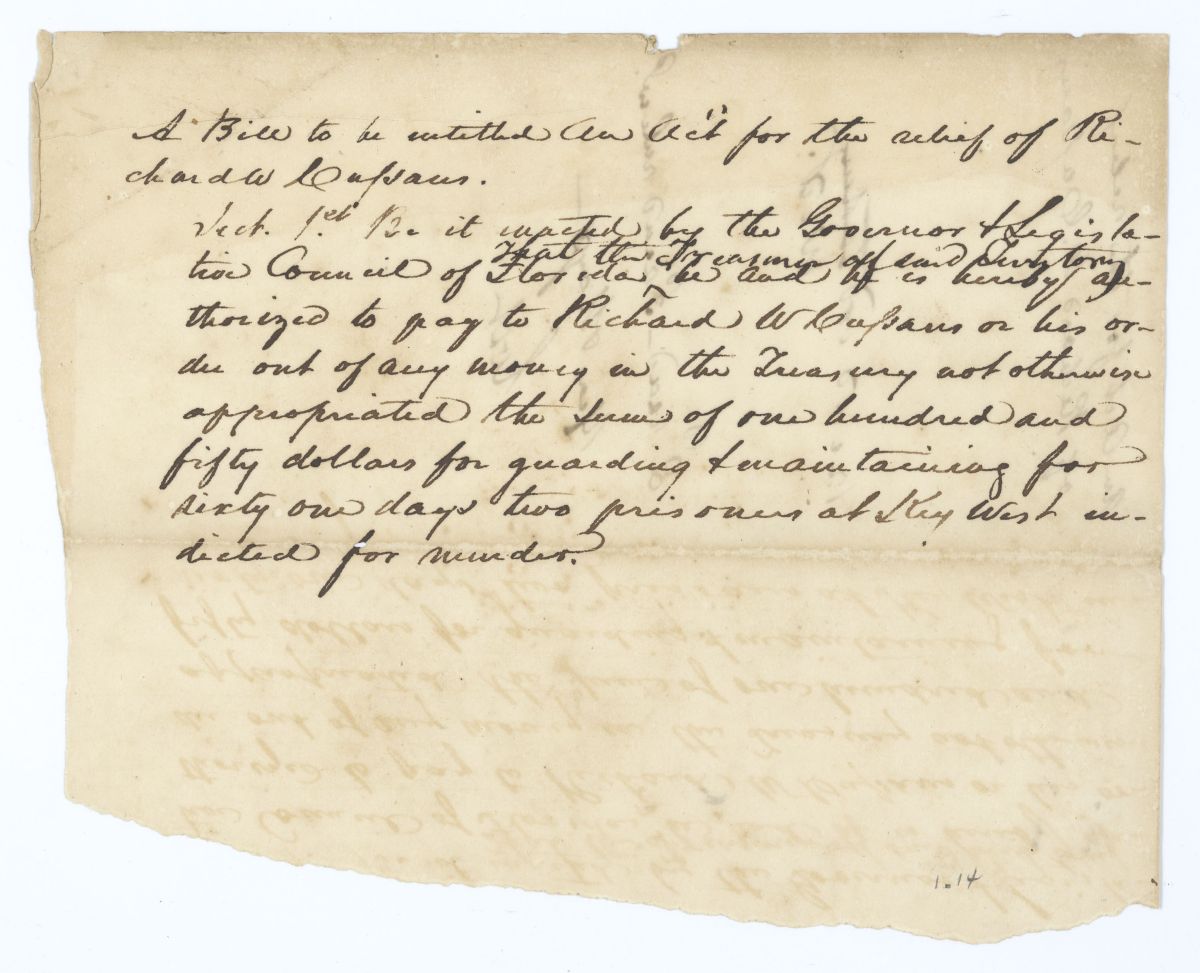 A Bill to be intitled An Act for the relief of Ri-
chard W Cussans.
Sect. 1st. Be it enacted by the Governor & Legisla-
That the Treasurer of said Territory
tive Council of Florida be and he is hereby au-
thorized to pay to Richard W Cussans or his or-
der out of any money in the Treasury not otherwise
appropriated the sum of one hundred and
fifty dollars for guarding & maintaining for
sixty one days two prisoners at Key West in-
dicted for murder.
1.14